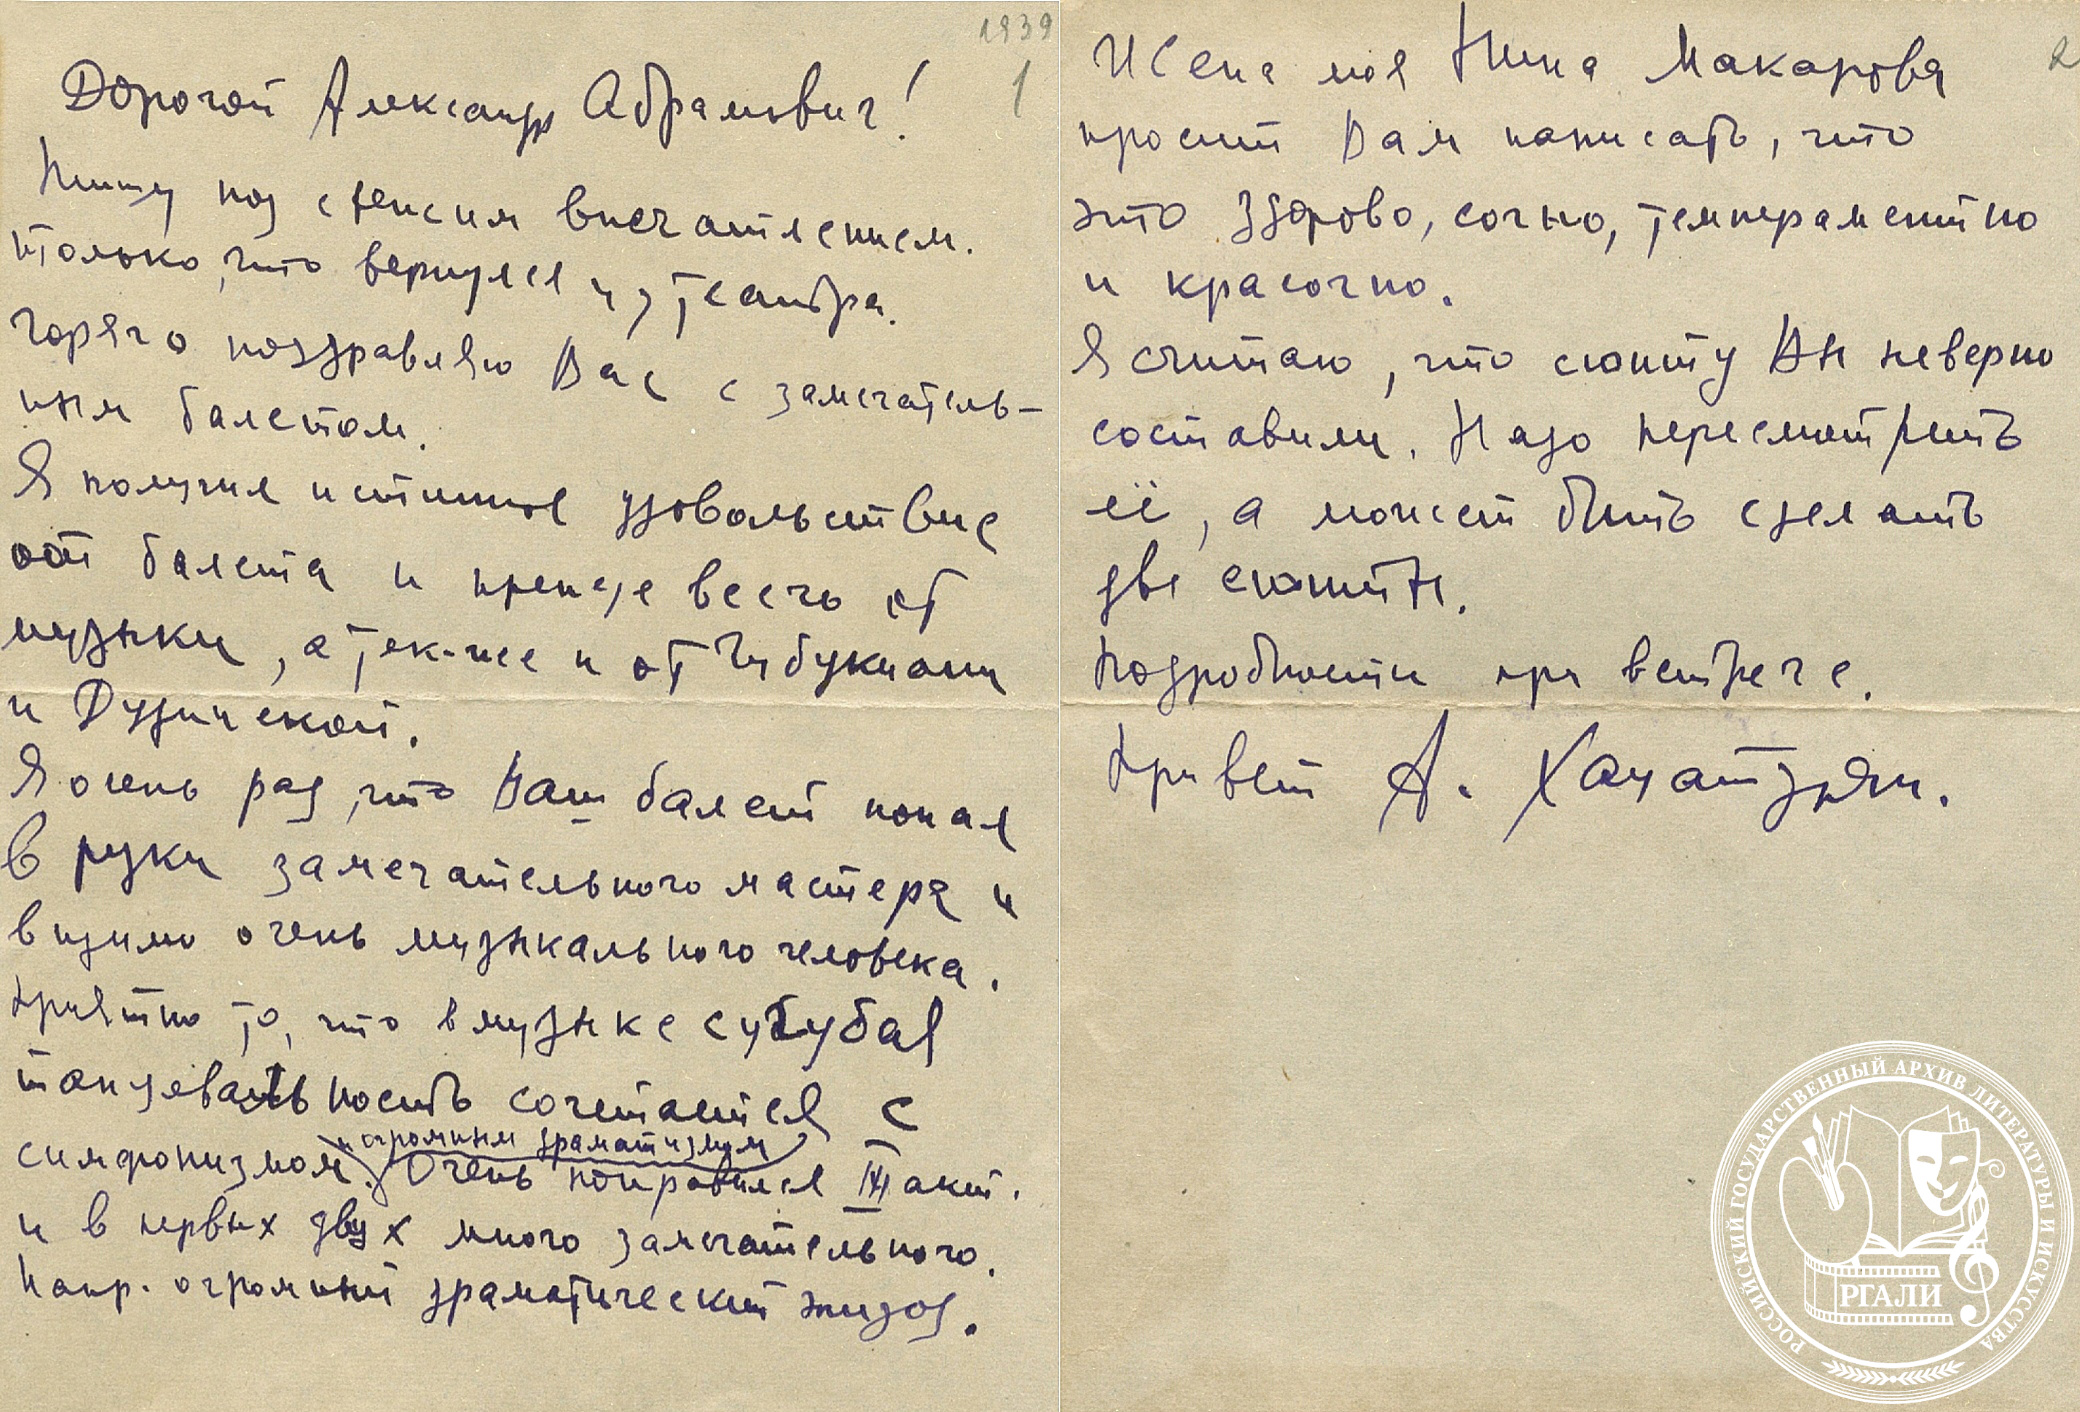 1939
1
Дорогой Александр Абрамович!
Пишу под свежим впечатлением.
только, что вернулся из театра.
Горячо поздравляю Вас с замечатель-
ным балетом.
Я получил истинное удовольствие
от балета и прежде всего от
музыки, а так-же и от Чабукиани
и Дудинской.
Я очень рад, что Ваш балет попал
в руки замечательного мастера и
видимо очень музыкального человека.
Приятно то, что в музыке сугубая
танцевальность сочетается с
и огромным драматизмом
симфонизмом. Очень понравился III акт.
и в первых двух много замечательного.
Напр. огромный драматический эпизод.
2
Жена моя Нина Макарова
просит Вам написать, что
это здорово, сочно, темпераментно
и красочно.
Я считаю, что сюиту Вы неверно
составили. Надо пересмотреть
её, а может быть сделать
две сюиты.
Подробности при встрече.
Привет А. Хачатурян.
РОССИЙСКИЙ ГОСУДАРСТВЕННЫЙ АРХИВ ЛИТЕРАТУРЫ И ИСКУССТВА
РГАЛИ